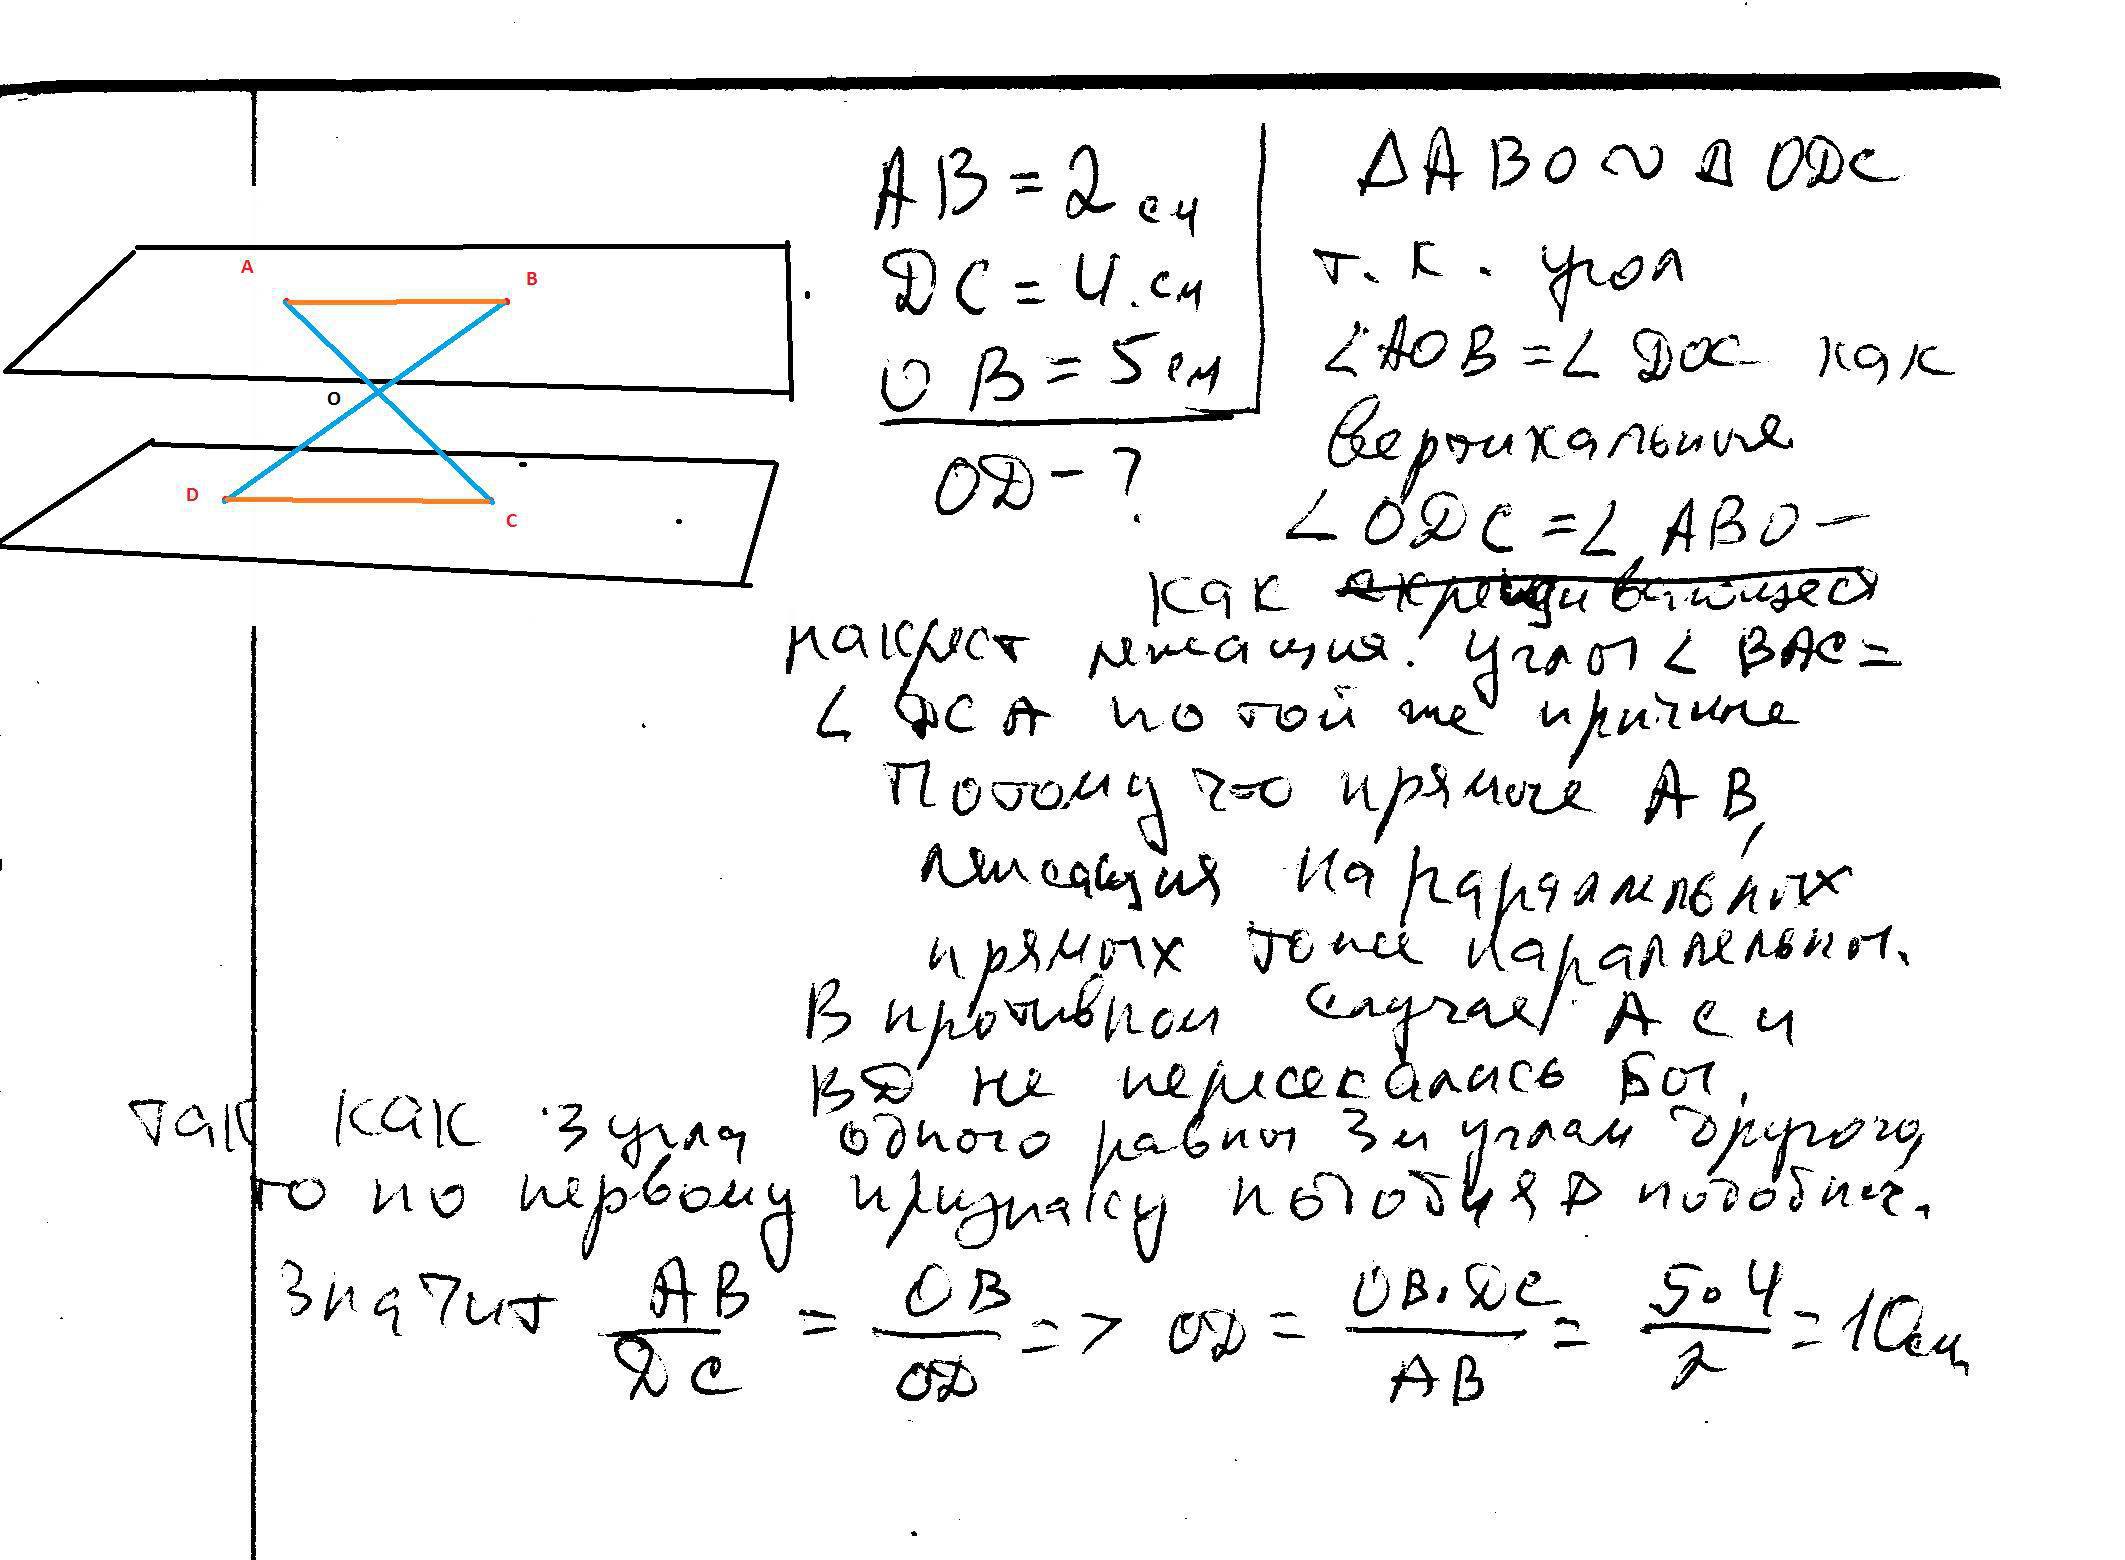 A
B
O
D
C
AB = 2 см
DC = 4 см
OB = 5 см
OD - ?
Δ ABO ~ Δ ODC
т.к. угол
∠AOB = ∠DOC как
вертикальные
∠ODC = ∠ABO -
как скрещивающиеся
накрест лежащия. Углы ∠BAC =
∠DCA по той же причине
Потому что прямые AB,
лежащия на параллельных
прямых тоже параллельны.
В противном случае AC и
BD не пересекались бы.
так как 3 угла одного равны 3м углам другого,
то по первому признаку подобия Δ подобны.
Значит AB/DC = OB/OD => OD = OB·DC/AB = 5·4/2 = 10 см